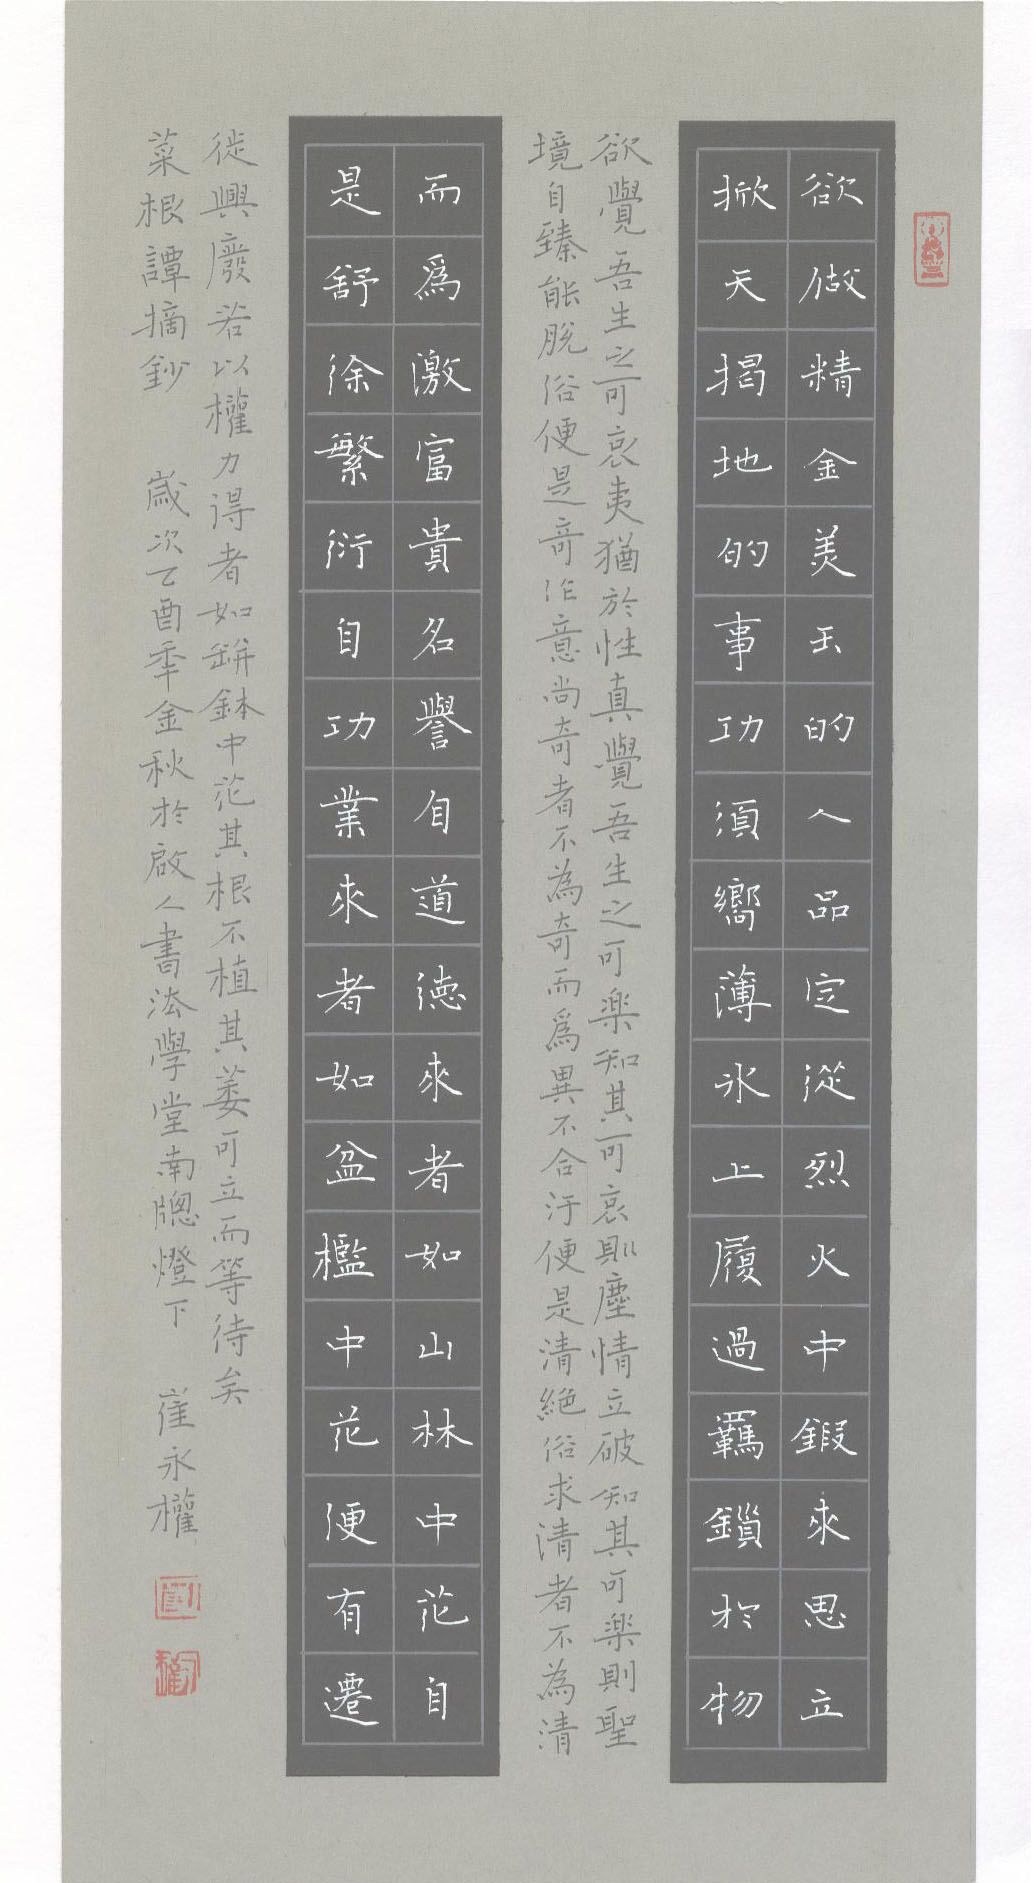 欲做精金美玉的人品定從烈火中鍛來思立
掀天揭地的事功須嚮薄氷上履過羈鎖於物
欲覺吾生之可哀夷猶於性真覺吾生之可楽知其可哀則塵情立破知其可楽則聖
境自臻能脫俗便是奇作意尚奇者不為奇而爲異不合汙便是清絶俗求清者不為清
而爲激富貴名譽自道德來者如山林中花自
是舒徐繁衍自功業來者如盆檻中花便有遷
徙興廢若以權力得者如缾鉢中花其根不植其萎可立而等待矣
菜根譚摘鈔 歲次乙酉秊金秋於啟人書法學堂南牕燈下 崔永權